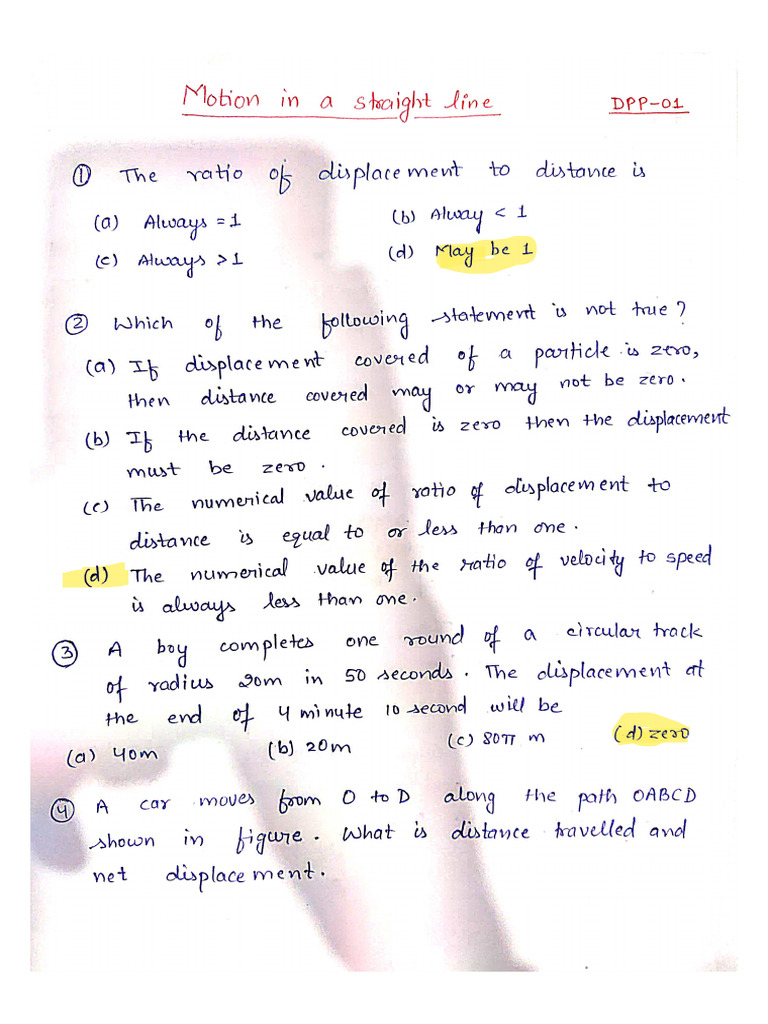 Motion in a straight line DPP-01
① The ratio of displacement to distance is
(a) Always = 1 (b) Alway < 1
(c) Always > 1 (d) May be 1
② Which of the following statement is not true?
(a) If displacement covered of a particle is zero,
then distance covered may or may not be zero.
(b) If the distance covered is zero then the displacement
must be zero.
(c) The numerical value of ratio of displacement to
distance is equal to or less than one.
(d) The numerical value of the ratio of velocity to speed
is always less than one.
③ A boy completes one round of a circular track
of radius 20m in 50 seconds. The displacement at
the end of 4 minute 10 second will be
(a) 40m (b) 20m (c) 80π m (d) zero
④ A car moves from O to D along the path OABCD
shown in figure. What is distance travelled and
net displacement.